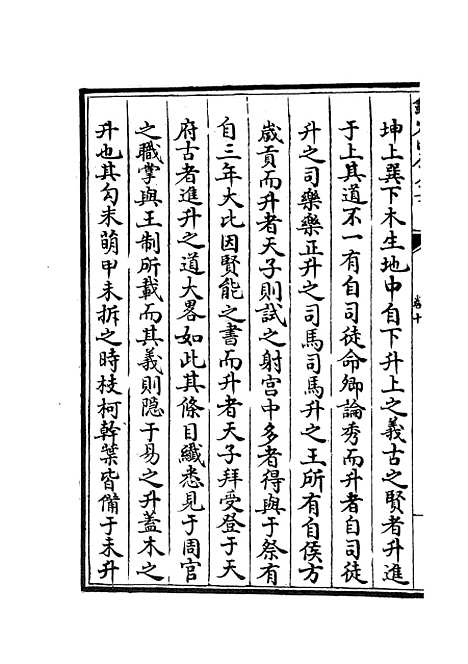 坤上巽下木生地中自下升上之義古之賢者升進
于上其道不一有自司徒命卿論秀而升者自司徒
升之司樂樂正升之司馬司馬升之王所有自侯方
歲貢而升者天子則試之射宫中多者得與于祭有
自三年大比因賢能之書而升者天子拜受登于天
府古者進升之道大畧如此其條目纖悉見于周官
之職掌與王制所載而其義則隐于易之升盖木之
升也其勾未萌甲未拆之時枝柯幹葉皆備于未升